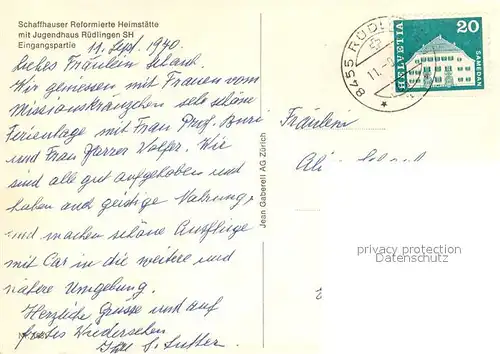 Schaffhauser Reformierte Heimstätte
mit Jugendhaus Rüdlingen SH
Eingangspartie
11. Sept. 1970.
Liebes Fräulein
Wir geniessen mit Frauen vom
Missionskränzchen sehr schöne
Ferientage mit Frau Prof. Buri
und Frau Pfarrer Wolfer. Wir
sind alle gut aufgehoben und
haben auch geistige Nahrung,
und machen schöne Ausflüge
mit Car in die weitere und
nähere Umgebung.
Herzliche Grüsse und auf
frohes Wiedersehen
Ihre S. Sutter
Jean Gaberell AG Zürich
8455 RÜDL
11.
HELVETIA
20
SAMEDAN
Fräulein
privacy protection